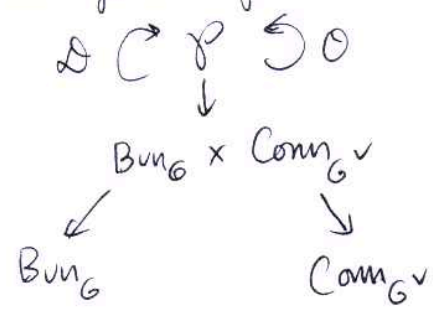 D P O
Bun_G × Conn_G^∨
Bun_G Conn_G^∨